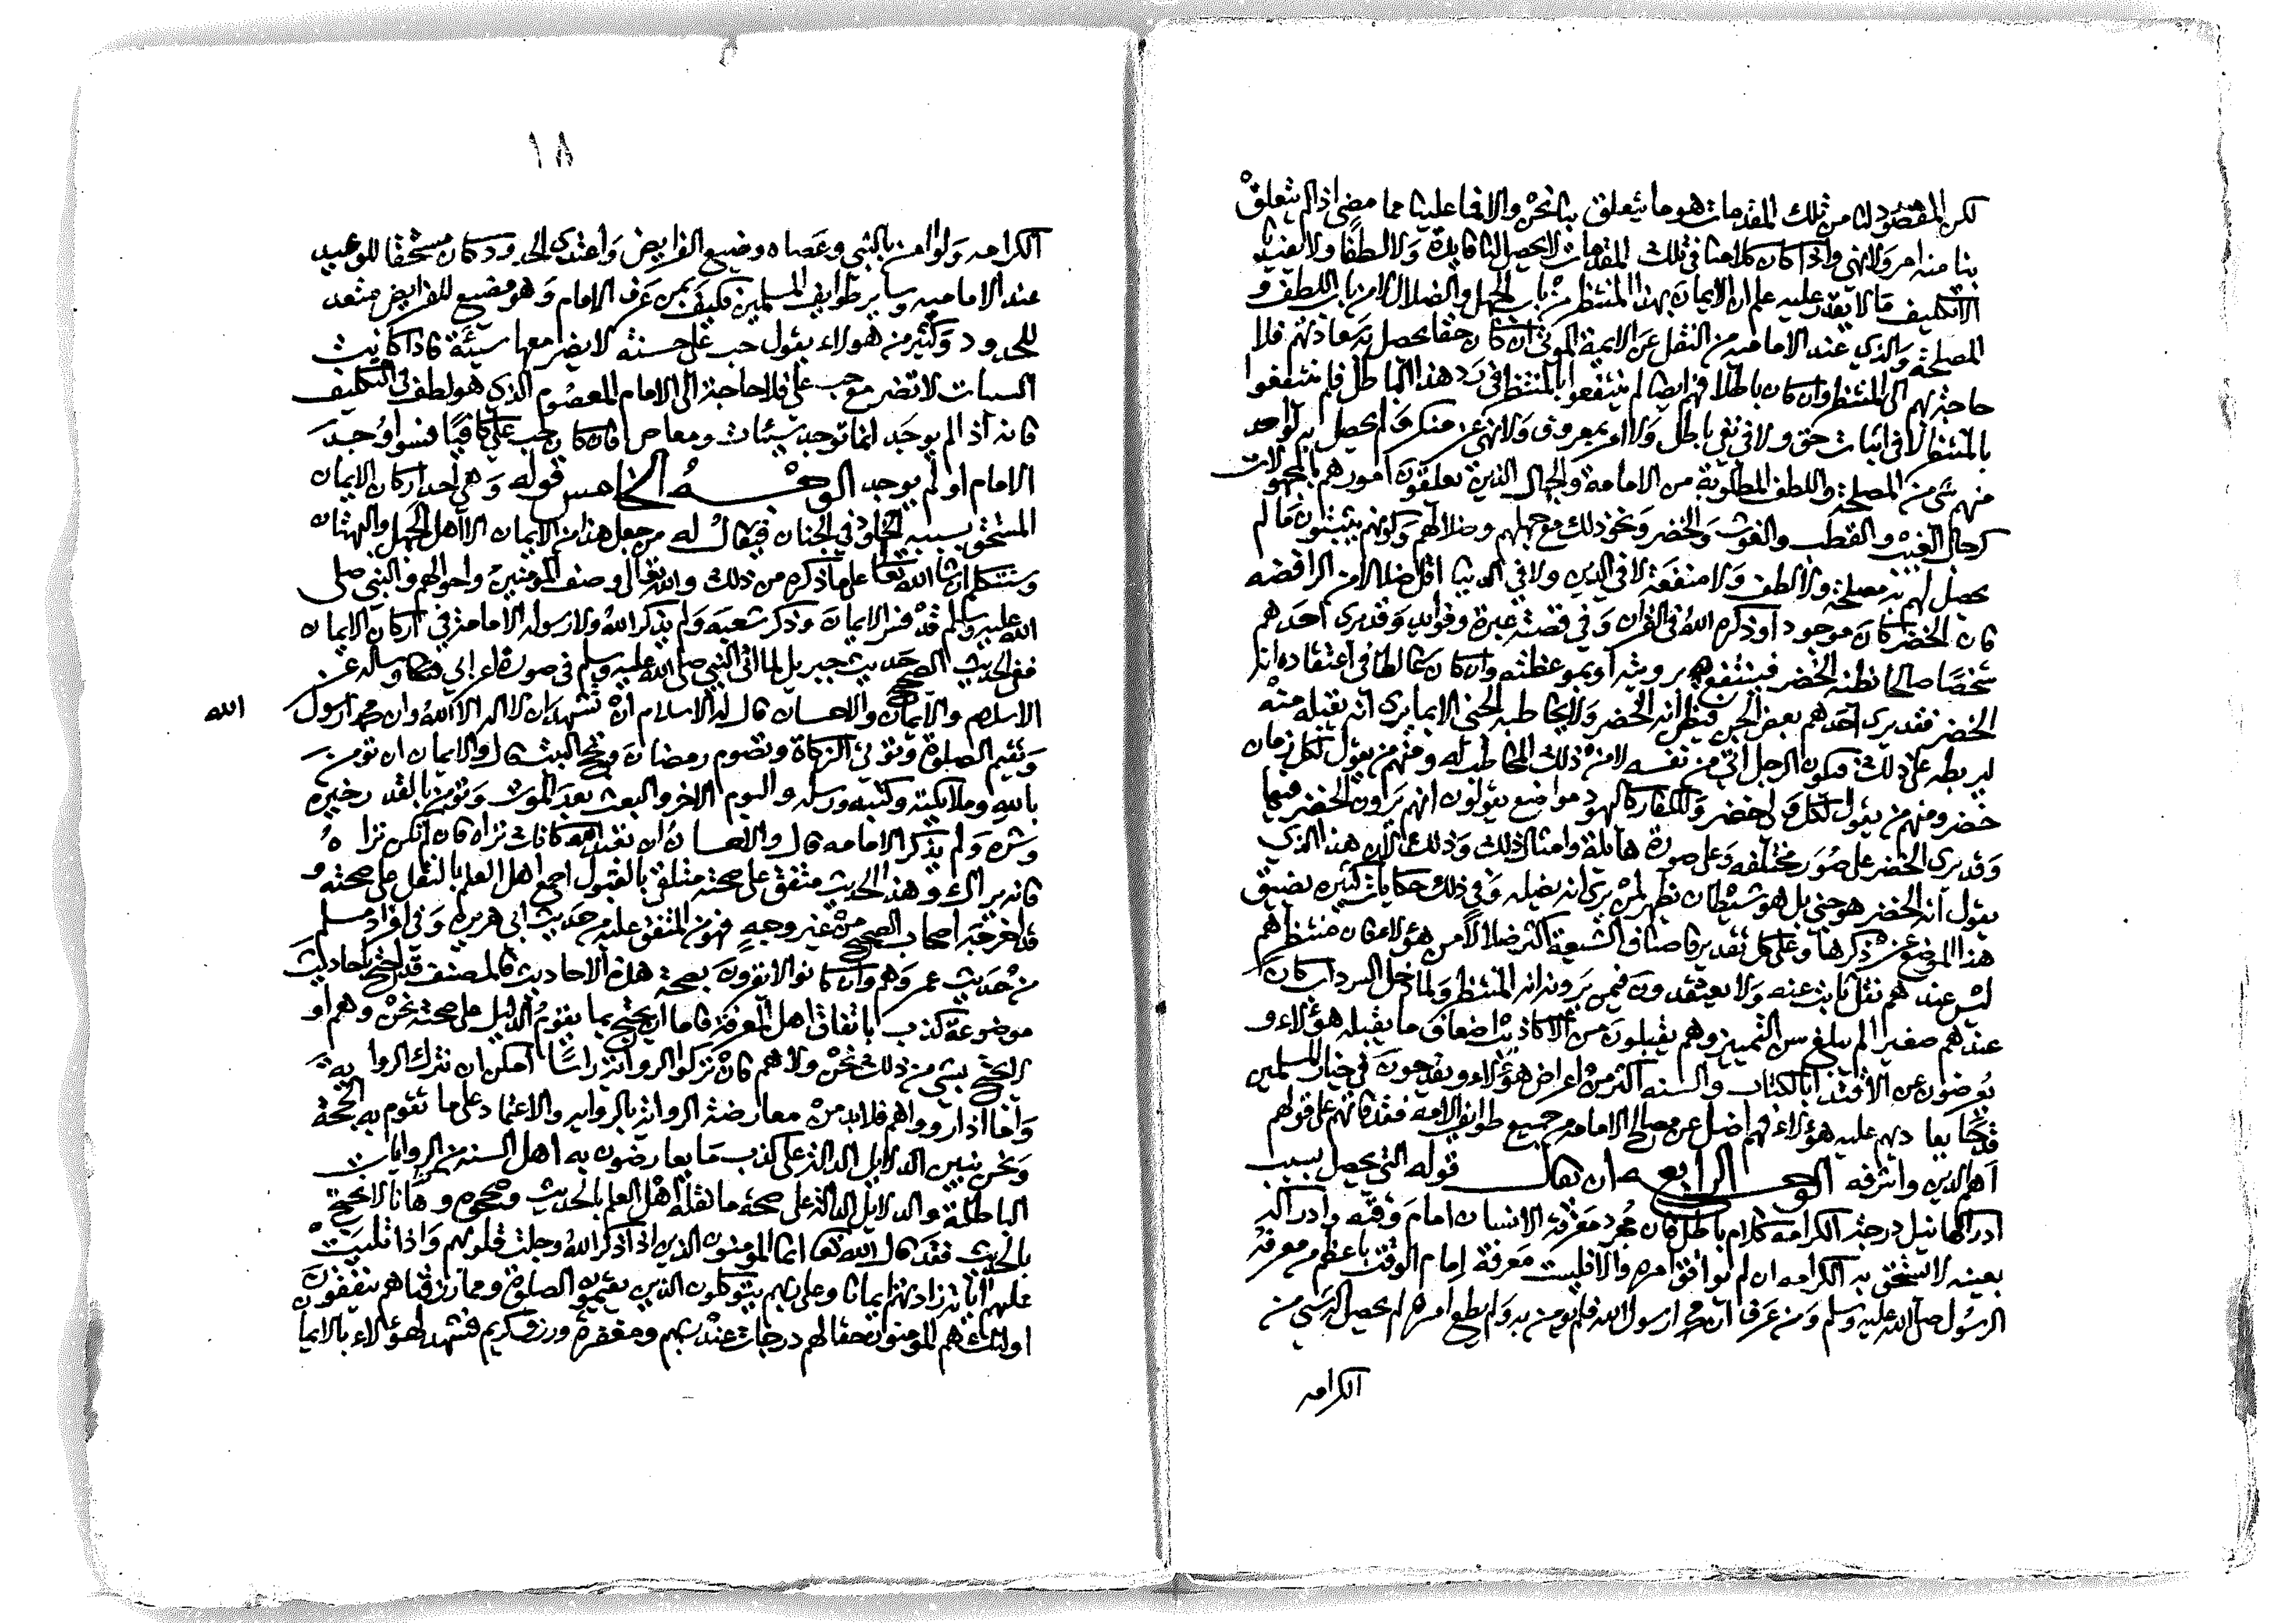 لكن المقصود لنا من تلك المقدمات هو ما يتعلق بنا نحن والا فما علينا مما مضى اذا لم يتعلق
بنا منه امر ولا نهي واذا كان كلامنا في تلك المقدمات لا يحصل لنا فايدة ولا لطفا ولا يفيدنا
الا تكليف ما لا يقدر عليه علم ان الايمان بهذا المنتظر من باب الجهل والضلال لا من باب اللطف و
المصلحة والذي عند الامامية من النقل عن الايمة الموتى ان كان حقا يحصل به سعادتهم فلا
حاجة بهم الى المنتظر وان كان باطلا فهم ايضا لم ينتفعوا بالمنتظر في رد هذا الباطل فلم ينتفعوا
بالمنتظر لا في اثبات حق ولا في نفي باطل ولا امر بمعروف ولا نهي عن منكر ولم يحصل به لواحد
منهم شي من المصلحة واللطف المطلوبة من الامامة والجهال الذين يعلقون امورهم بالمجهولات
كرجال الغيب والقطب والغوث والخضر ونحو ذلك مع جهلهم وضلالهم وكونهم يثبتون ما لم
يحصل لهم به مصلحة ولا لطف ولا منفعة لا في الدين ولا في الدنيا اقل ضلالا من الرافضه
فان الخضر كان موجودا وذكره الله في القران وفي قصته عبرة وفوايد وقد يرى احدهم
شخصا صالحا يظنه الخضر فينتفع به برويته او بموعظته وان كان غالطا في اعتقاده انه
الخضر فقد يرى احدهم بعض الجن فيظن انه الخضر ولا يخاطبه الجني الا بما يرى انه يقبله منه
ليربطه على ذلك فيكون الرجل اتي من نفسه لا من ذلك المخاطب له ومنهم من يقول لكل زمان
خضر ومنهم من يقول لكل ولي خضر وللكفار كاليهود مواضع يقولون انهم يرون الخضر فيها
وقد يرى الخضر على صور مختلفه وعلى صورة هايلة وامثال ذلك وذلك لان هذا الذي
يقول انه الخضر هو جني بل هو شيطان يظهر لمن يرى انه يضله وفي ذلك حكايات كثيره يضيق
هذا الموضع عن ذكرها وعلى كل تقدير فاصناف الشيعة اكثر ضلالا من هؤلاء فان منتظرهم
ليس عندهم نقل ثابت عنه ولا يعتقدون فيمن يرونه انه المنتظر ولما دخل السرداب كان
عندهم صغيرا لم يبلغ سن التمييز وهم يقبلون من الاكاذيب اضعاف ما يقبله هؤلاء و
يعرضون عن الاقتدا بالكتاب والسنه اكثر من اعراض هؤلاء ويقدحون في خيار المسلمين
قدحا يعاديهم عليه هؤلاء فهم اضل عن مصالح الامامه من جميع طوايف الامه فقد فاتهم على قولهم
اهم الدين واشرفه الوجه الرابع ان يقال قوله التي يحصل بسبب
ادراكها نيل درجة الكرامه كلام باطل فان مجرد معرفة الانسان امام وقته وادراكه
بعينه لا يستحق به الكرامه ان لم يوافق امره والا فليست معرفة امام الوقت باعظم من معرفة
الرسول صلى الله عليه وسلم ومن عرف ان محمدا رسول الله فلم يومن به ولم يطع امره لم يحصل له شي من
الكرامه
١٨
الكرامه ولو امن بالنبي وعصاه وضيع الفرايض واعتدى الحدود كان مستحقا للوعيد
عند الامامية وساير طوايف المسلمين فكيف بمن عرف الامام وهو مضيع للفرايض متعد
للحدود وكثير من هولاء يقول حب علي حسنة لا يضر معها سيئة فاذا كانت
السيات لا تضر مع حب علي فلا حاجة الى الامام المعصوم الذي هو لطف في التكليف
فانه اذا لم يوجد انما توجد سيئات ومعاص فان كان حب علي كافيا فسوا وجد
الامام او لم يوجد الوجه الخامس قوله وهي احد اركان الايمان
المستحق بسببه الخلود في الجنان فيقال له من جعل هذا من الايمان الا اهل الجهل والبهتان
وسنتكلم ان شا الله تعا على ما ذكره من ذلك والله تعالى وصف المومنين واحوالهم والنبي صلى
الله عليه وسلم قد فسر الايمان وذكر شعبه ولم يذكر الله ولا رسوله الامامة في اركان الايمان
ففي الحديث الصحيح حديث جبريل لما اتى النبي صلى الله عليه وسلم في صورة اعرابي وساله عن
الاسلام والايمان والاحسان قال له الاسلام ان تشهد ان لا اله الا الله وان محمدا رسول الله
وتقيم الصلوة وتوتي الزكاة وتصوم رمضان وتحج البيت قال والايمان ان تومن
بالله وملايكته وكتبه ورسله واليوم الاخر والبعث بعد الموت وتومن بالقدر خيره
وشره ولم يذكر الامامه قال والاحسان ان تعبد الله كانك تراه فان لم تكن تراه
فانه يراك وهذا الحديث متفق على صحته متلقى بالقبول اجمع اهل العلم بالنقل على صحته و
قد اخرجه اصحاب الصحيح من غير وجه فهو من المتفق عليه من حديث ابي هريره وفي افراد مسلم
من حديث عمر وهم وان كانوا لا يقرون بصحة هذه الاحاديث فالمصنف قد احتج باحاديث
موضوعة كذب باتفاق اهل المعرفة فاما ان يحتج بما يقوم الدليل على صحته نحن وهم او
لا يحتج بشي من ذلك نحن ولا هم فان تركوا الرواية راسا امكن ان نترك الرواية
واما اذا رووا هم فلا بد من معارضة الرواية بالروايه والاعتماد على ما تقوم به الحجة
ونحن نبين الدلايل الدالة على كذب ما يعارضون به اهل السنة من الروايات
الباطلة والدلايل الدالة على صحة ما نقله اهل العلم بالحديث وصححوه وهب انا لا نحتج
بالحديث فقد قال الله تعا انما المؤمنون الذين اذا ذكر الله وجلت قلوبهم واذا تليت
عليهم اياته زادتهم ايمانا وعلى ربهم يتوكلون الذين يقيمون الصلوة ومما رزقناهم ينفقون
اولئك هم المومنون حقا لهم درجات عند ربهم ومغفرة ورزق كريم فشهد لهؤلاء بالايما